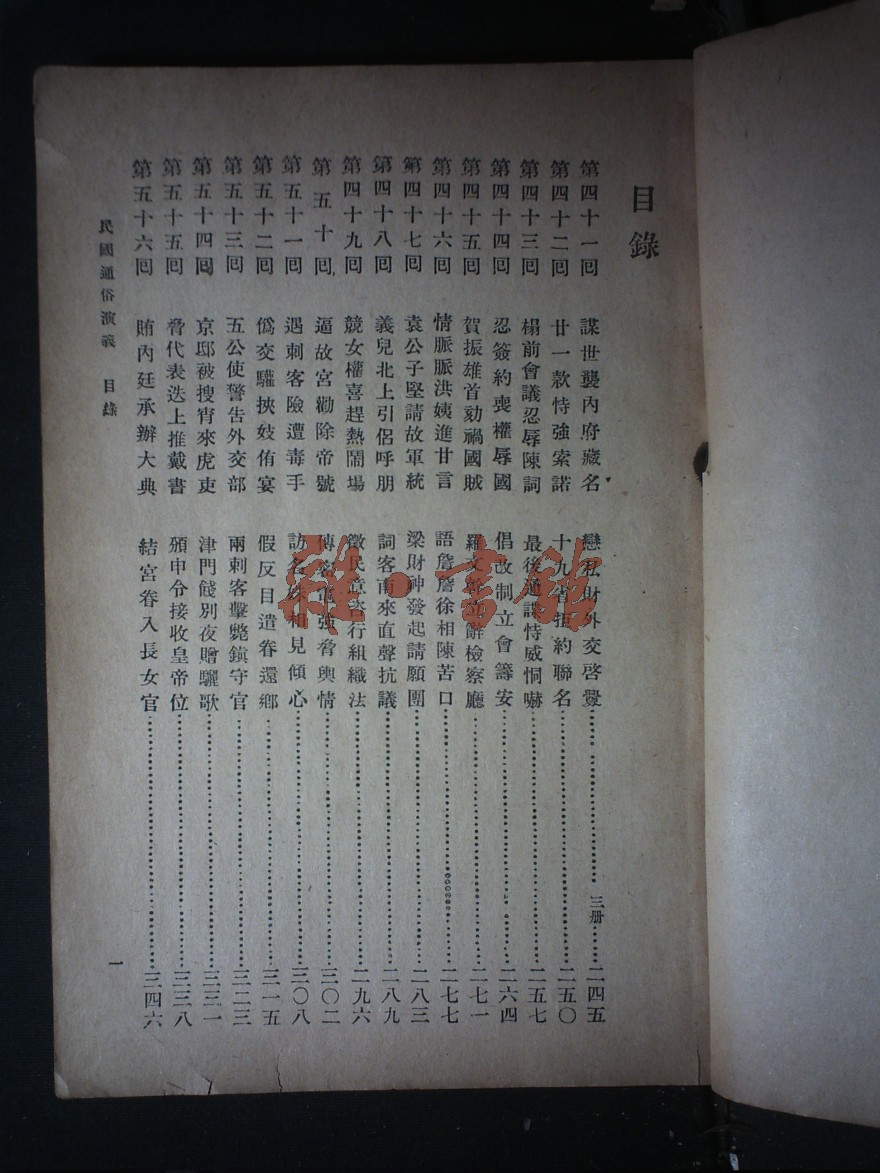 目錄
第四十一囘 謀世襲內府藏名 戀私財外交啓釁………… 三册……二四五
第四十二囘 廿一款恃強索諾 十九省拒約聯名…………二五〇
第四十三囘 榻前會議忍辱陳詞 最後通諜恃威恫嚇…………二五七
第四十四囘 忍簽約喪權辱國 倡改制立會籌安…………二六四
第四十五囘 賀振雄首劾禍國賊 羅文幹立辭檢察廳…………二七一
第四十六囘 情脈脈洪姨進甘言 語詹詹徐相陳苦口…………二七七
第四十七囘 袁公子堅請故軍統 梁財神發起請願團…………二八三
第四十八囘 義兒北上引侶呼朋 詞客南來直聲抗議…………二八九
第四十九囘 競女權喜趕熱鬧場 徵民意咨行組織法…………二九六
第五十囘 逼故宮勸除帝號 傳密電強脅輿情…………三〇二
第五十一囘 遇刺客險遭毒手 訪名姝相見傾心…………三〇八
第五十二囘 僞交驩挾妓侑宴 假反目遣眷還鄉…………三一五
第五十三囘 五公使警告外交部 兩刺客擊斃鎮守官…………三二三
第五十四囘 京邸被搜宵來虎吏 津門餞別夜贈驪歌…………三三一
第五十五囘 脅代表迭上推戴書 頒申令接收皇帝位…………三三八
第五十六囘 賄內廷承辦大典 結宮眷入長女官…………三四六
民國通俗演義 目錄
一
雜·書館